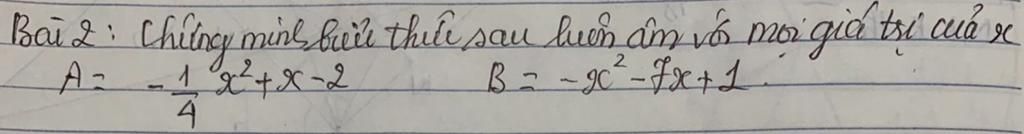 Bài 2: Chứng minh biểu thức sau luôn âm với mọi giá trị của x
A = -1/4 x² + x - 2 B = -x² - 7x + 1